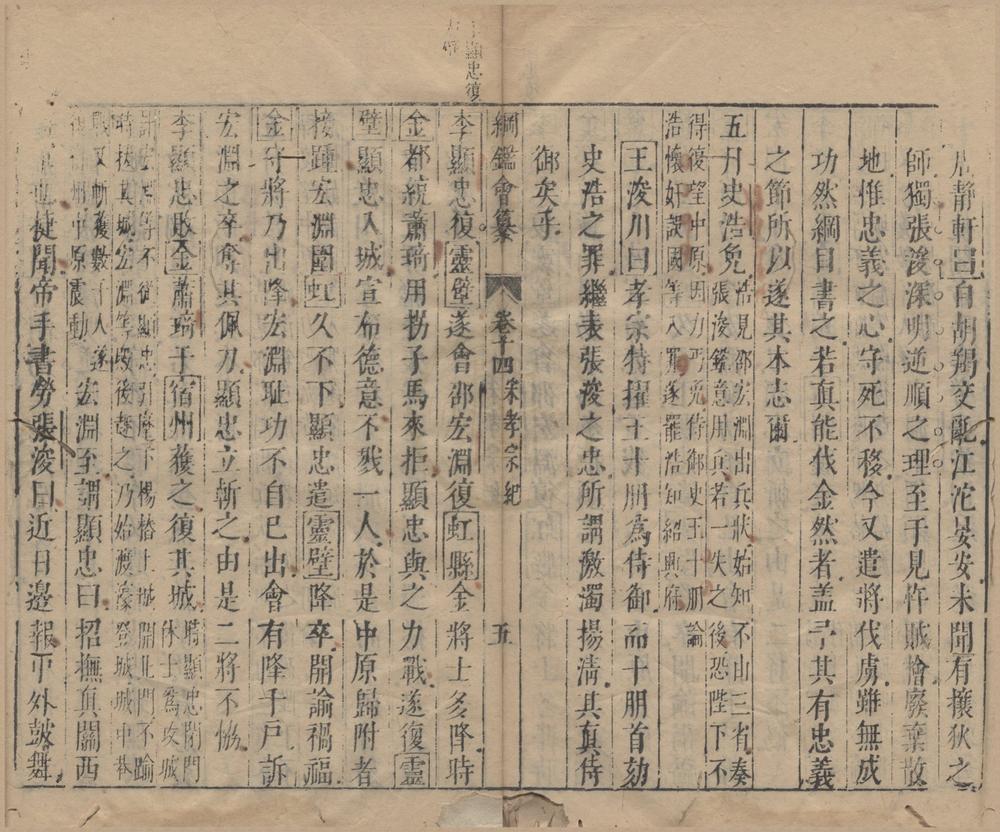 周靜軒曰自胡羯交亂江沱晏安未聞有攘狄之
師獨張浚深明逆順之理至于見忤賊檜廢棄散
地惟忠義之心守死不移今又遣將伐虜雖無成
功然綱目書之若真能伐金然者蓋予其有忠義
之節所以遂其本志爾
五月史浩免浩見邵宏淵出兵狀始知不由三省奏
得復望中原因力丐免侍御史王十朋論
張浚銳意用兵若一失之後恐陛下不
浩懷奸誤國等八罪遂罷浩知紹興府
王浚川曰孝宗特擢王十朋為侍御而十朋首劾
史浩之罪繼表張浚之忠所謂激濁揚清其真侍
御矣乎
綱鑑會纂 卷十四 宋孝宗紀 五
李顯忠復
李顯忠復靈壁遂會邵宏淵復虹縣金將士多降時
金都統蕭琦用拐子馬來拒顯忠與之力戰遂復靈
壁顯忠入城宣布德意不戮一人於是中原歸附者
接踵宏淵圍虹久不下顯忠遣靈壁降卒開諭禍福
金守將乃出降宏淵耻功不自己出會有降千戶訴
宏淵之卒奪其佩刀顯忠立斬之由是二將不恊
李顯忠敗金蕭琦于宿州獲之復其城時顯忠閉門休士為攻城
計宏淵等不從顯忠引麾下楊椿上城開北門不踰
時拔其城宏淵等殿後趨之乃始渡濠登城城中巷
戰又斬獲數千人遂復宿州中原震動宏淵至謂顯忠曰招撫真關西
將軍也捷聞帝手書勞張浚曰近日邊報中外鼓舞